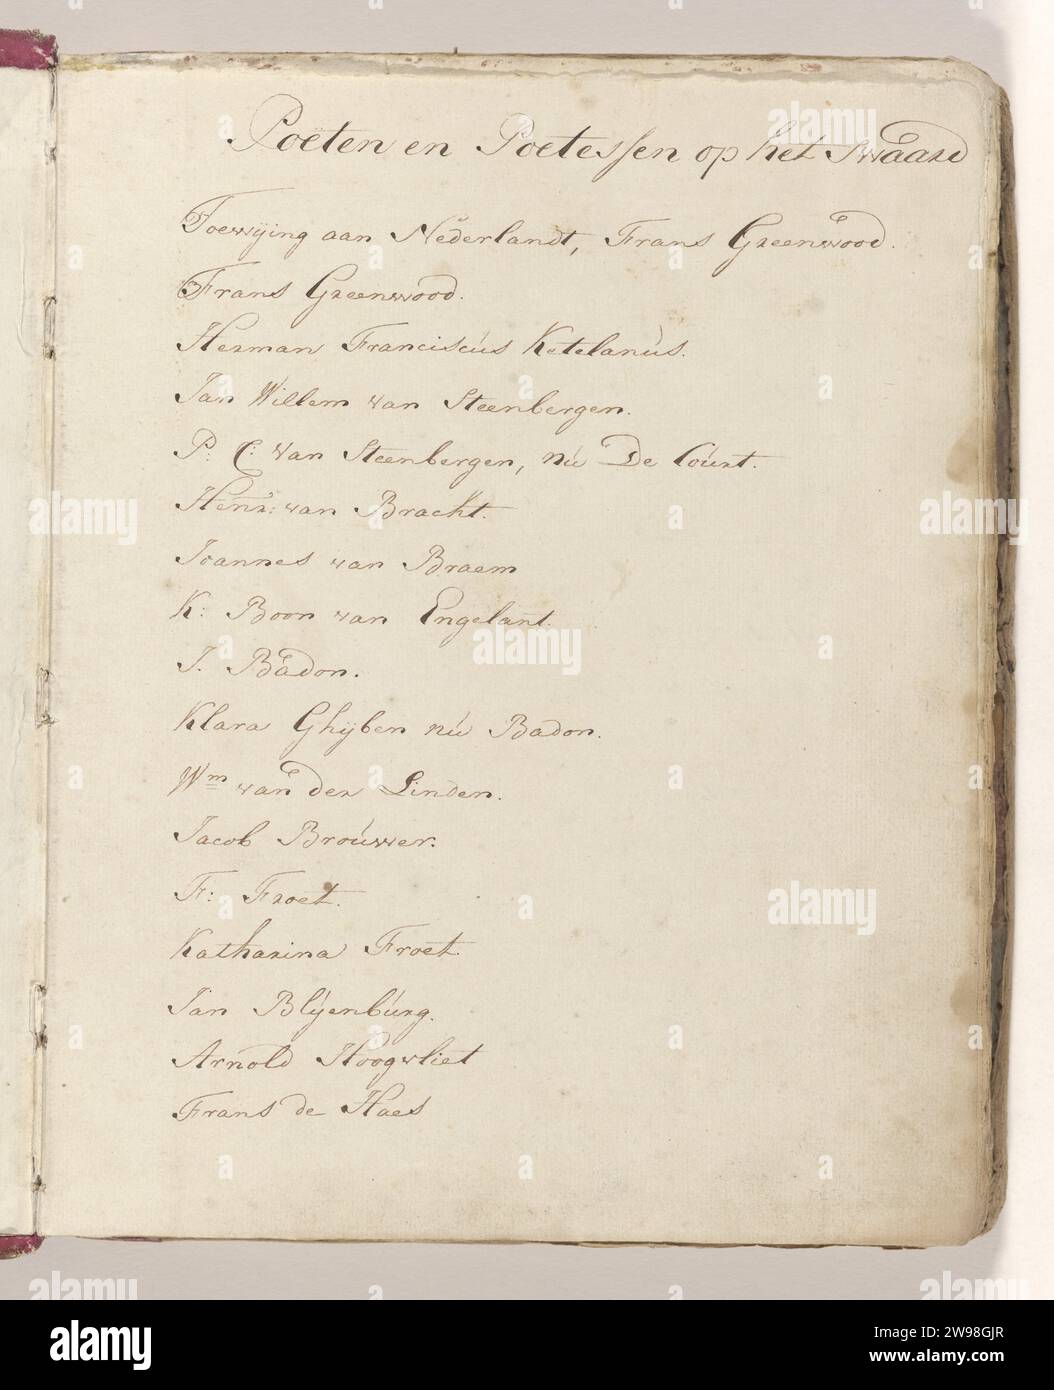 Poëten en Poetessen op het Swaard
Toewijing aan Nederlandt, Frans Greenwood.
Frans Greenwood.
Herman Franciscús Ketelanús.
Jan Willem van Steenbergen.
P: C: van Steenbergen, nú De Coúrt.
Henr: van Bracht.
Joannes van Braem
K: Boon van Engelant.
J. Badon.
Klara Ghijben nú Badon.
Wm van der Linden.
Jacob Broúwer.
F: Froet.
Katharina Froet.
Jan Blijenbúrg.
Arnold Hoogvliet
Frans de Haes
alamy
Image ID: 2W98GJR
www.alamy.com